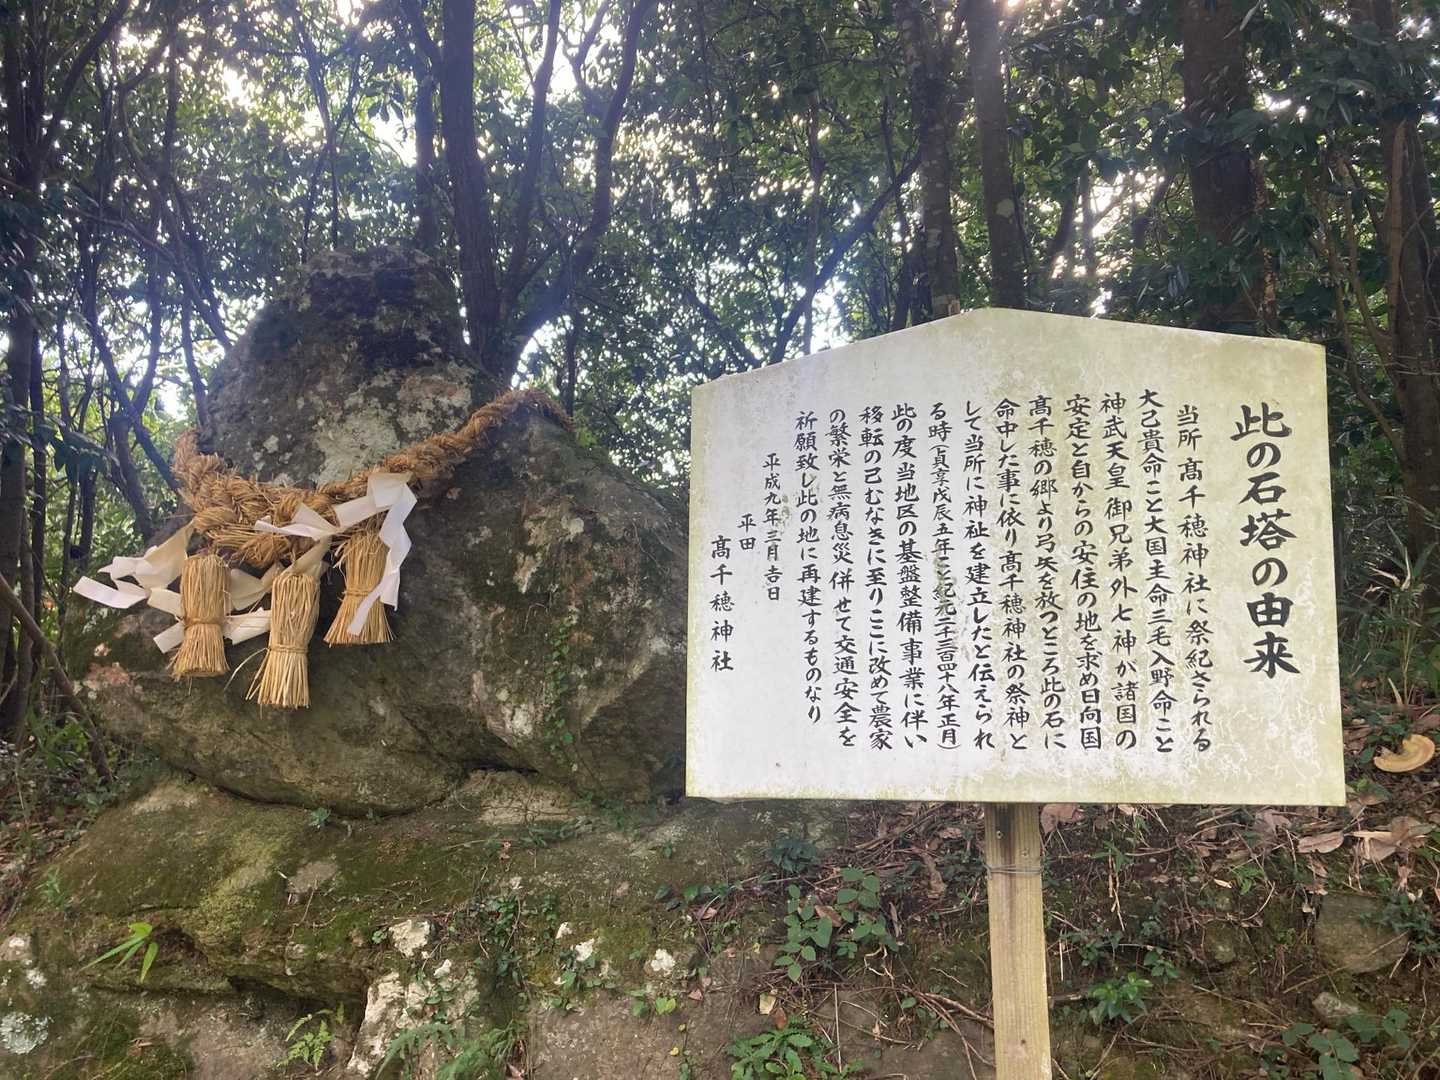 此の石塔の由来
当所髙千穂神社に祭紀さられる
大己貴命こと大国主命三毛入野命こと
神武天皇御兄弟外七神が諸国の
安定と自からの安住の地を求め日向国
髙千穂の郷より弓矢を放つところ此の石に
命中した事に依り髙千穂神社の祭神と
して当所に神祉を建立したと伝えられ
る時(貞享戊辰五年こと紀元二千三百四十八年正月)
此の度当地区の基盤整備事業に伴い
移転の己むなきに至りここに改めて農家
の繁栄と無病息災併せて交通安全を
祈願致し此の地に再建するものなり
平成九年三月吉日
平田
髙千穂神社